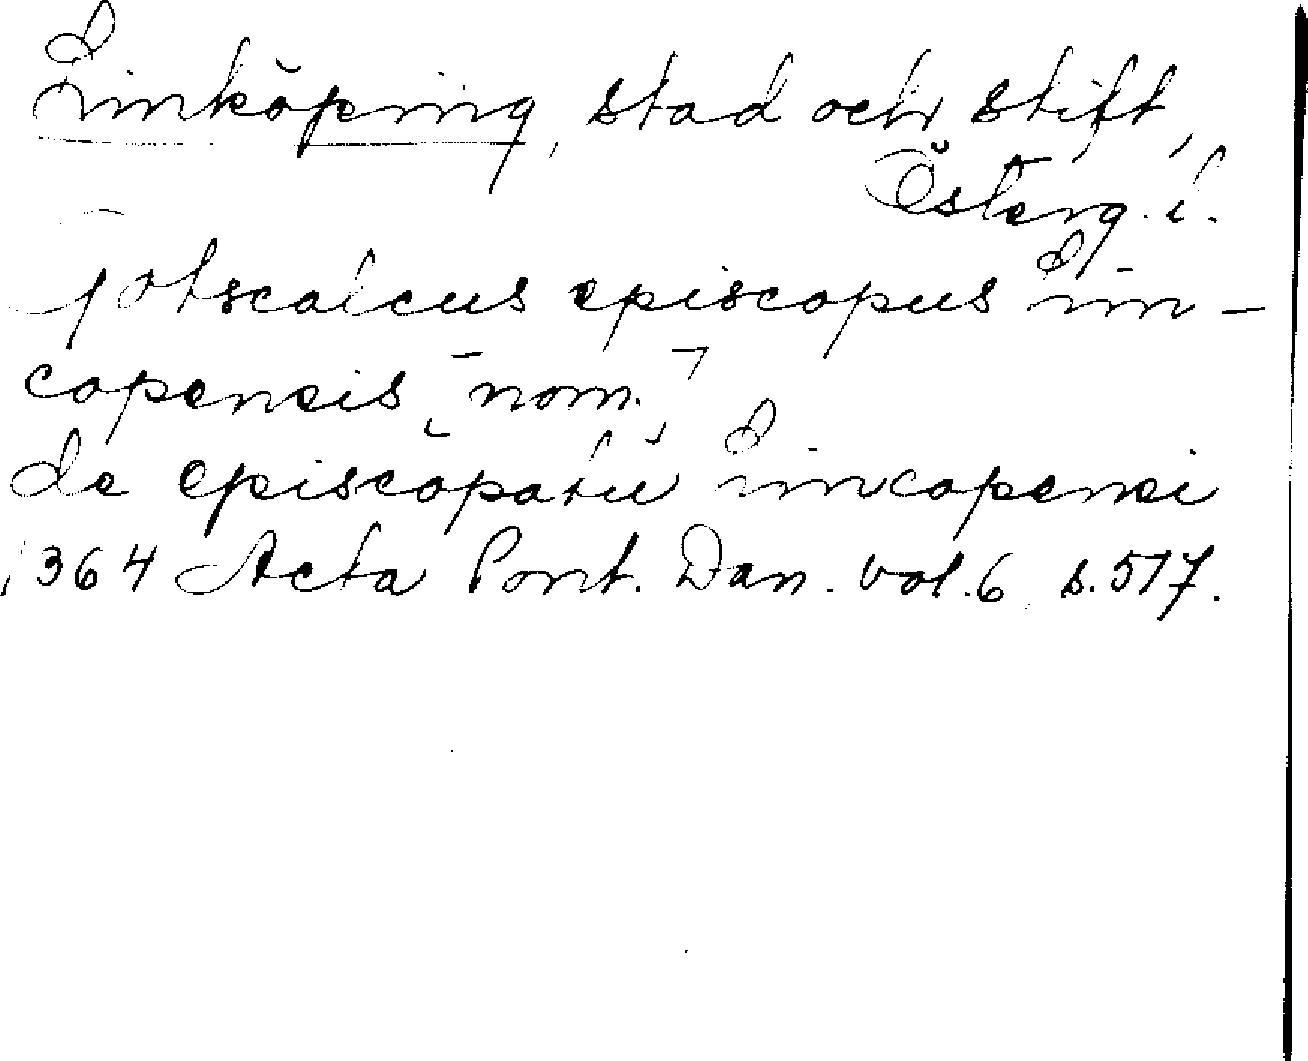 Linköping, stad och stift,
Österg. l.
Gotscalcus episcopus Lin-
copensis [nom.]
de episcopatu Lincopensi
1364 Acta Pont. Dan. vol. 6 s. 517.